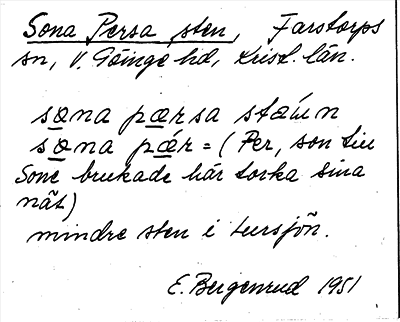 Sona Persa sten, Farstorps
sn, V. Göinge hd, Krist. län.
sǫna pærsa stæin
sǫna pǽr = (Per, son till
Sone brukade här torka sina
nät)
mindre sten i Lursjön.
E. Bergenrud 1951